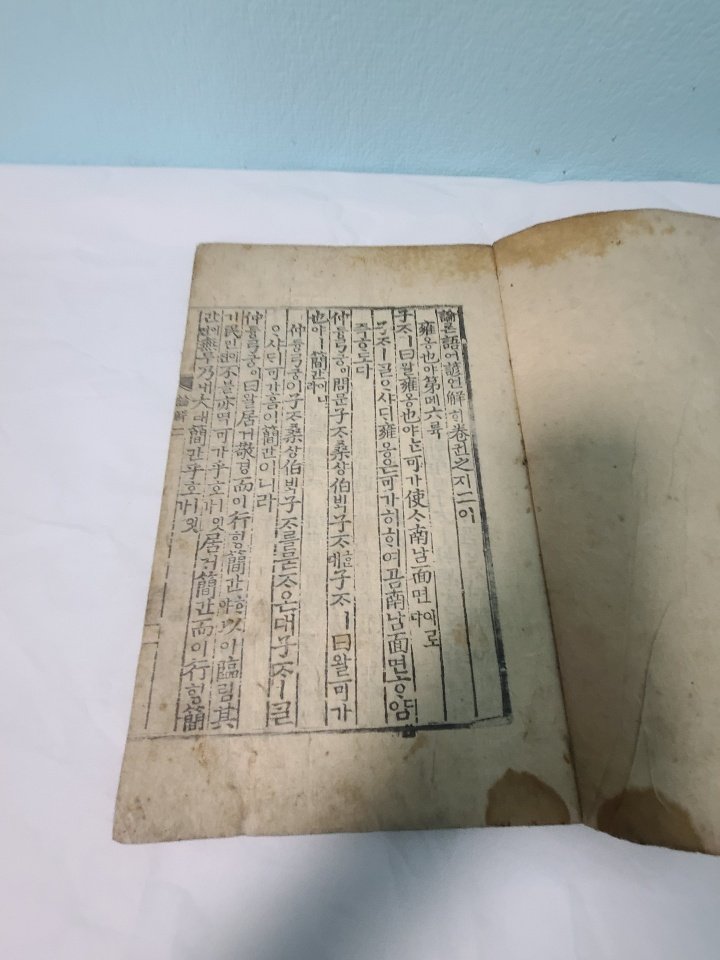 論론語어諺언解ᄒᆡ卷권之지二이
雍옹也야第뎨六륙
子ᄌᆞㅣ曰왈雍옹也야ᄂᆞᆫ可가使ᄉᆞ南남面면이로다
子ᄌᆞㅣᄀᆞᆯᄋᆞ샤ᄃᆡ雍옹은可가히ᄒᆞ여곰南남面면ᄒᆞ얌
즉ᄒᆞ도다
仲듕弓궁이問문子ᄌᆞ桑상伯ᄇᆡᆨ子ᄌᆞᄒᆞᆫ대子ᄌᆞㅣ曰왈可가
也야ㅣ簡간이니라
仲듕弓궁이子ᄌᆞ桑상伯ᄇᆡᆨ子ᄌᆞ를묻ᄌᆞ온대子ᄌᆞㅣᄀᆞᆯ
ᄋᆞ샤ᄃᆡ可가홈이簡간이니라
仲듕弓궁이曰왈居거敬경而이行ᄒᆡᆼ簡간ᄒᆞ야以이臨림其
기民민이면不블亦역可가乎호잇가居거簡간而이行ᄒᆡᆼ簡
간이면無무乃내大태簡간乎호잇가
論解二